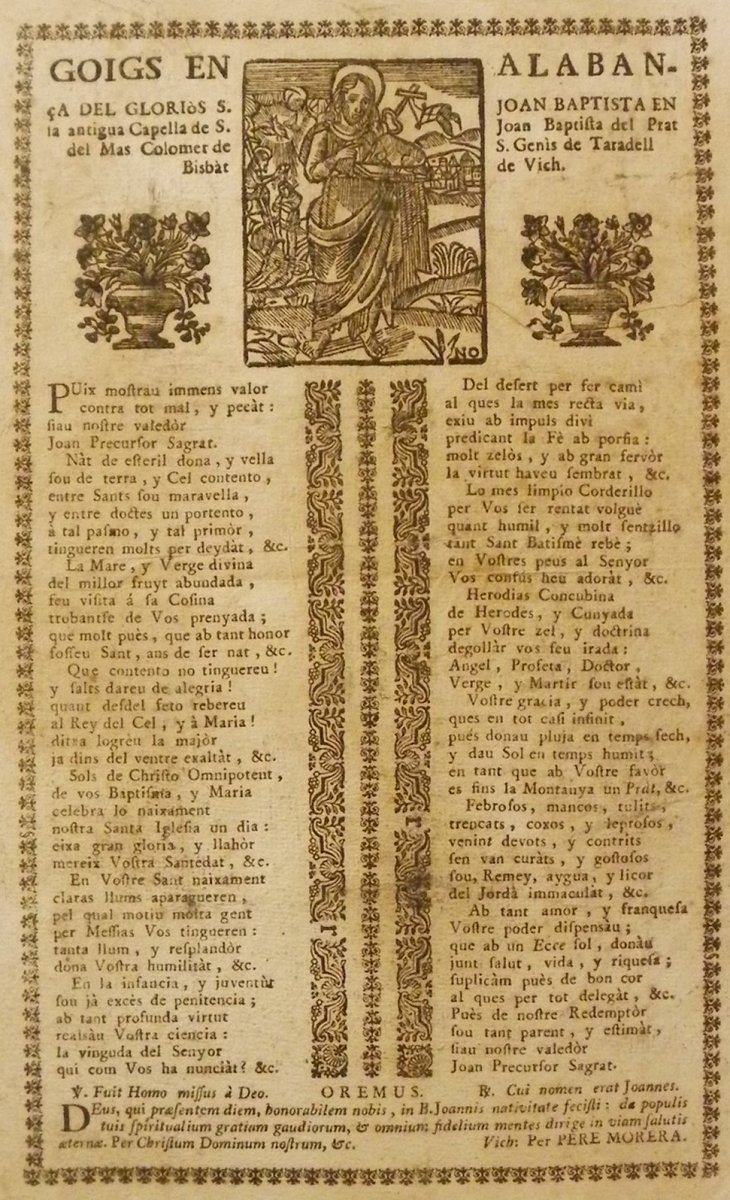 GOIGS EN ALABAN-
çA DEL GLORIòS S. JOAN BAPTISTA EN
la antigua Capella de S. Joan Baptiſta del Prat
del Mas Colomer de S. Genìs de Taradell
Bisbàt de Vich.
NO
PUix moſtrau immens valor
contra tot mal, y pecàt:
ſiau noſtre valedòr
Joan Precurſor Sagrat.
Nàt de eſteril dona, y vella
ſou de terra, y Cel contento,
entre Sants ſou maravella,
y entre doctes un portento,
à tal paſmo, y tal primòr,
tingueren molts per deydàt, &c.
La Mare, y Verge divina
del millor fruyt abundada,
feu viſita á ſa Coſina
trobantſe de Vos prenyada;
que molt puès, que ab tant honor
foſſeu Sant, ans de ſer nat, &c.
Que contento no tinguereu!
y ſalts dareu de alegria!
quant desdel feto rebereu
al Rey del Cel, y à Maria!
ditxa logrèu la majòr
ja dins del ventre exaltàt, &c.
Sols de Chriſto Omnipotent,
de vos Baptiſta, y Maria
celebra lo naixament
noſtra Santa Igleſia un dia:
eixa gran gloria, y llahòr
mereix Voſtra Santedat, &c.
En Voſtre Sant naixament
claras llums aparagueren,
pel qual motiu moſta gent
per Meſſias Vos tingueren:
tanta llum, y reſplandòr
dòna Voſtra humilitàt, &c.
En la infancia, y juventùt
ſou jà excès de penitencia;
ab tant profunda virtut
realsàu Voſtra ciencia:
la vinguda del Senyor
qui com Vos ha nunciàt? &c.
Del deſert per fer camì
al ques la mes recta via,
exiu ab impuls divì
predicant la Fè ab porfia:
molt zelòs, y ab gran fervòr
la virtut haveu ſembrat, &c.
Lo mes limpio Corderillo
per Vos ſer rentat volguè
quant humil, y molt ſentzillo
tant Sant Batiſmè rebè;
en Voſtres peus al Senyor
Vos confús heu adoràt, &c.
Herodias Concubina
de Herodes, y Cunyada
per Voſtre zel, y doctrina
degollàr vos feu irada:
Angel, Profeta, Doctor,
Verge, y Martir ſou eſtàt, &c.
Voſtre gracia, y poder crech,
ques en tot caſi infinit,
puès donau pluja en temps ſech,
y dau Sol en temps humit;
en tant que ab Voſtre favòr
es fins la Montanya un Prat, &c.
Febroſos, mancos, tulits,
trencats, coxos, y leproſos,
venint devots, y contrits
ſen van curàts, y goſoſos
ſou, Remey, aygua, y licor
del Jordà immaculàt, &c.
Ab tant amor, y franqueſa
Voſtre poder diſpenſàu;
que ab un Ecce ſol, donàu
junt ſalut, vida, y riqueſa;
ſuplicàm puès de bon cor
al ques per tot delegàt, &c.
Puès de noſtre Redemptòr
ſou tant parent, y eſtimàt,
ſiau noſtre valedòr
Joan Precurſor Sagrat.
℣. Fuit Homo miſſus à Deo. OREMUS. ℟. Cui nomen erat Joannes.
DEus, qui præſentem diem, honorabilem nobis, in B. Joannis nativitate feciſti: da populis
tuis ſpiritualium gratiam gaudiorum, & omnium fidelium mentes dirige in viam ſalutis
æternæ. Per Chriſtum Dominum noſtrum, &c. Vich: Per PERE MORERA.